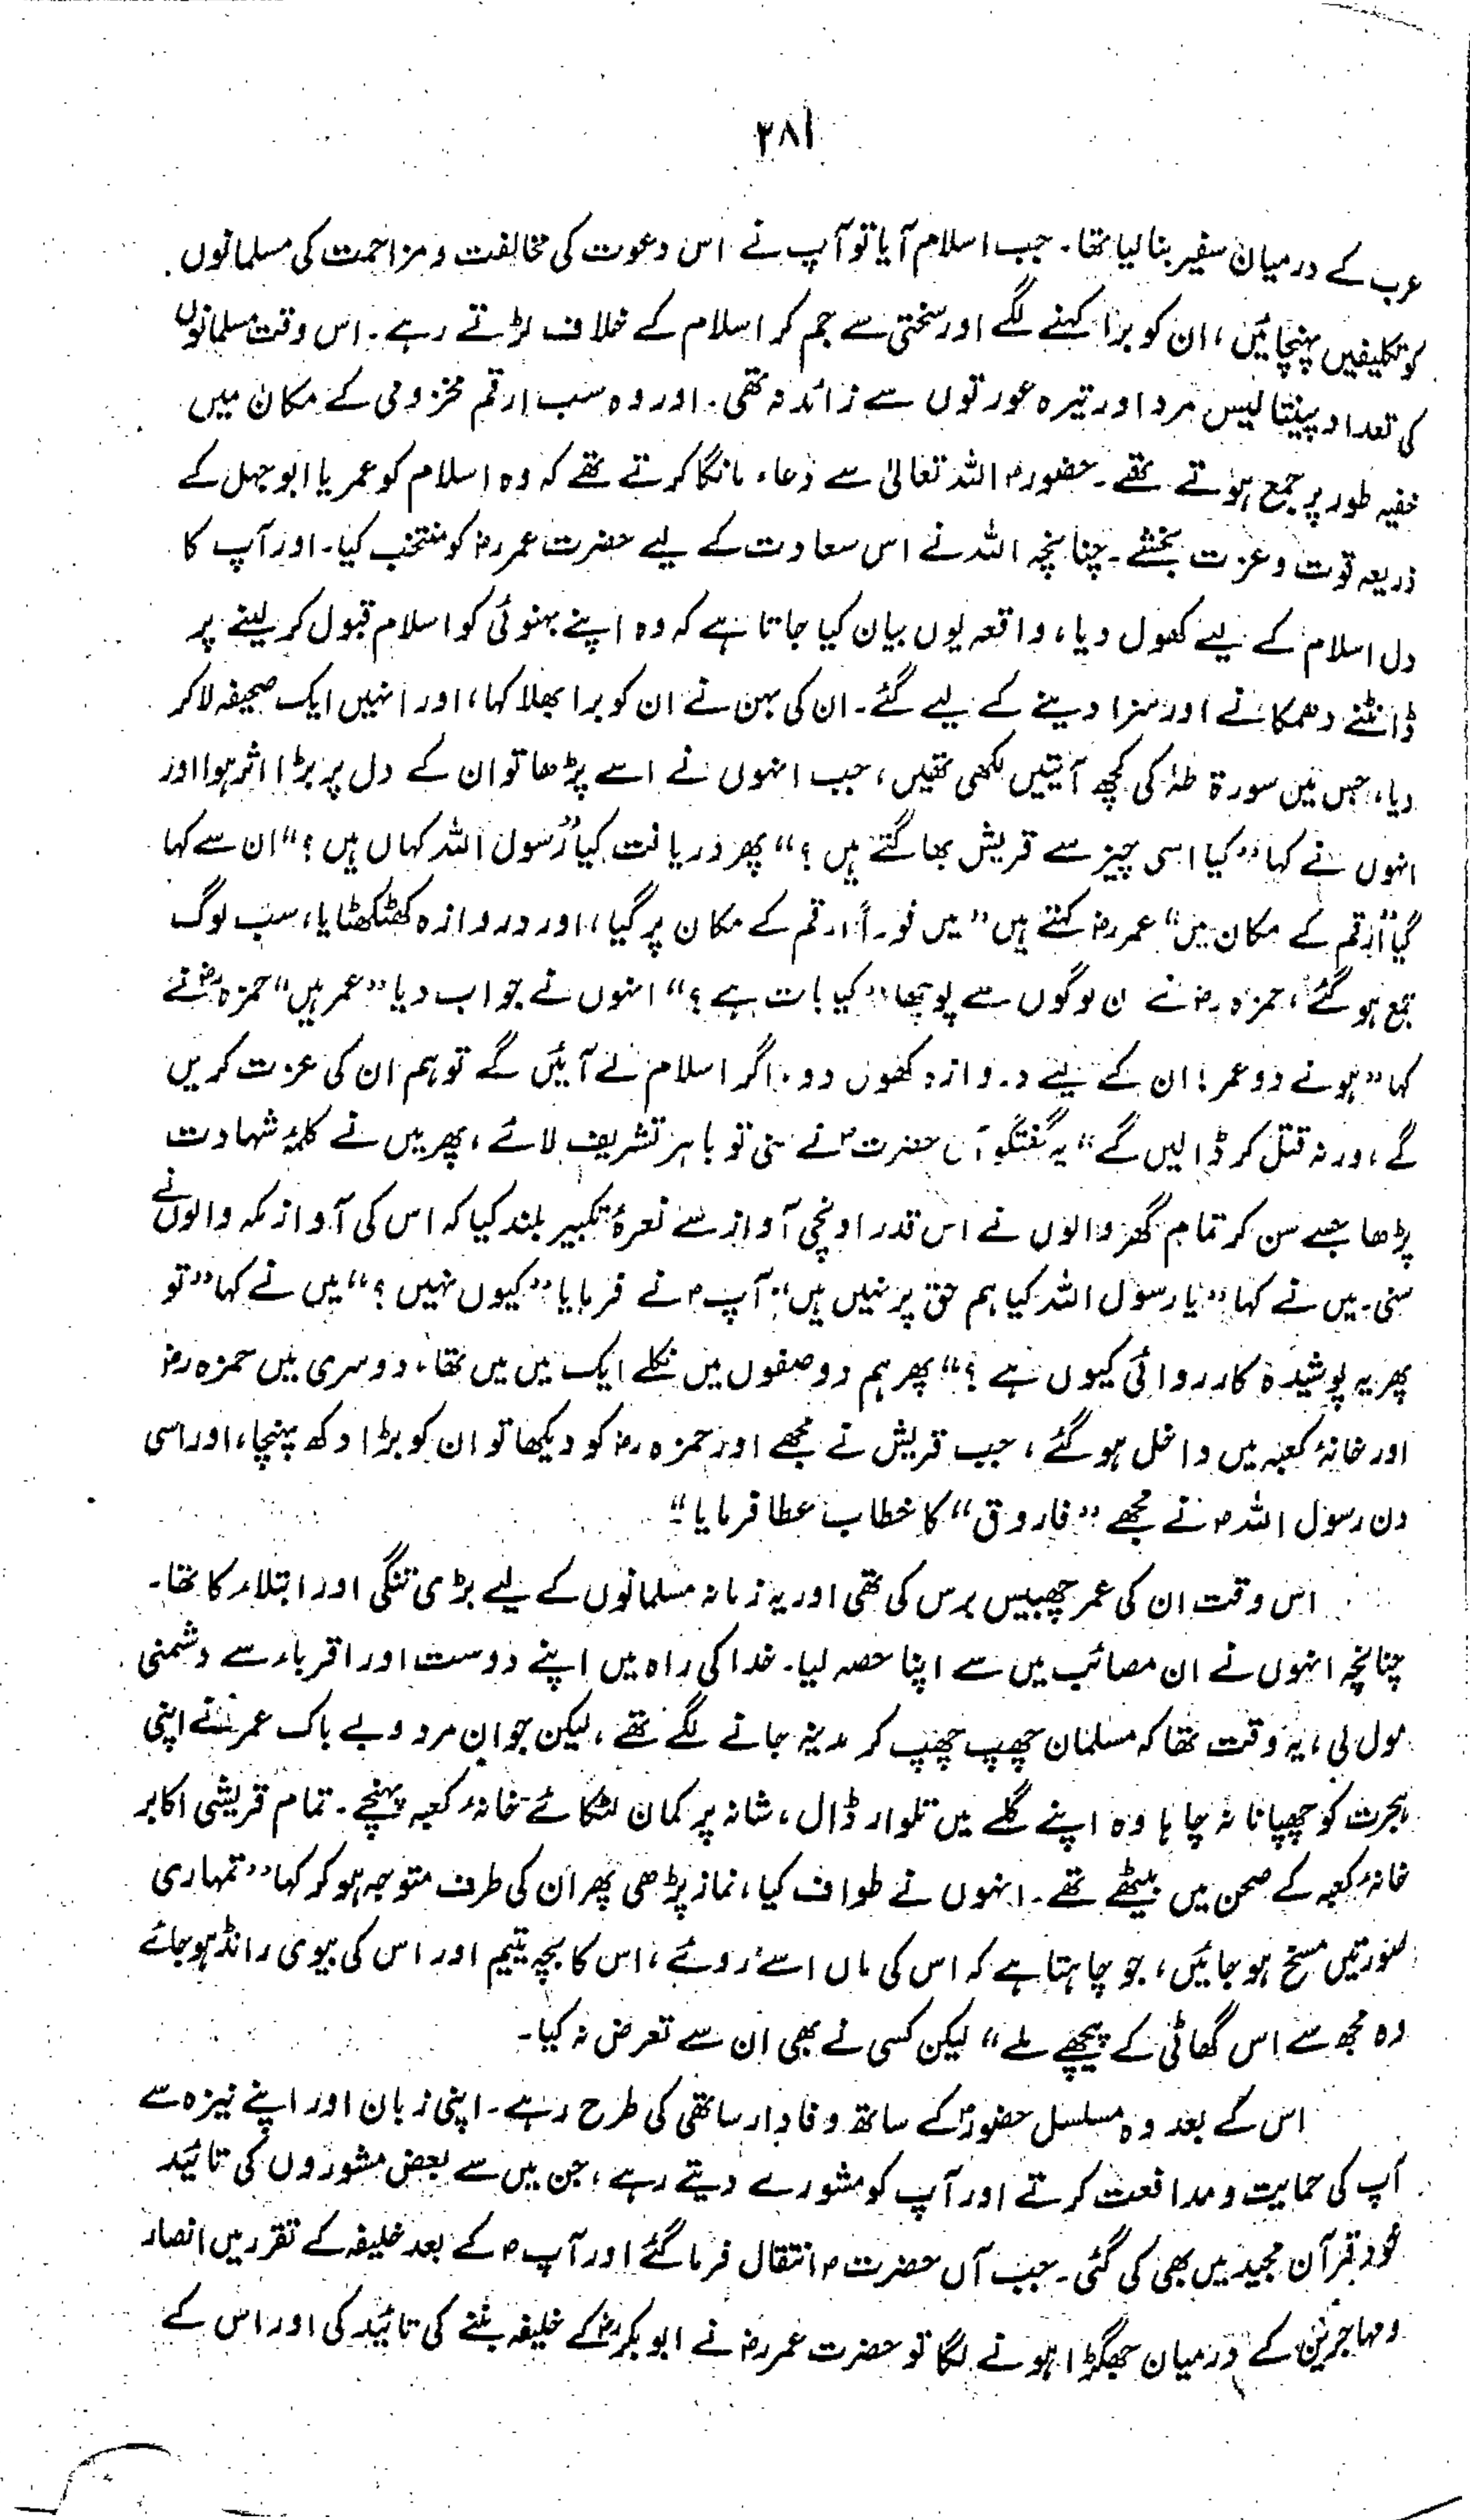 ۲۸۱
عرب کے درمیان سفیر بنا لیا تھا۔ جب اسلام آیا تو آپ نے اس دعوت کی مخالفت و مزاحمت کی مسلمانوں
کو تکلیفیں پہنچائیں، ان کو برا کہنے لگے اور سختی سے جم کر اسلام کے خلاف لڑتے رہے۔ اس وقت مسلمانوں
کی تعداد پینتالیس مرد اور تیرہ عورتوں سے زائد نہ تھی۔ اور وہ سب ارقم مخزومی کے مکان میں
خفیہ طور پر جمع ہوتے تھے۔ حضورؐ اللہ تعالیٰ سے دعاء مانگا کرتے تھے کہ وہ اسلام کو عمر یا ابوجہل کے
ذریعہ قوت و عزت بخشے۔ چنانچہ اللہ نے اس سعادت کے لیے حضرت عمر رضؓ کو منتخب کیا۔ اور آپ کا
دل اسلام کے لیے کھول دیا، واقعہ یوں بیان کیا جاتا ہے کہ وہ اپنے بہنوئی کو اسلام قبول کر لینے پر
ڈانٹنے دھمکانے اور سزا دینے کے لیے گئے۔ ان کی بہن نے ان کو برا بھلا کہا، اور انہیں ایک صحیفہ لا کر
دیا، جس میں سورۃ طٰہٰ کی کچھ آیتیں لکھی تھیں، جب انہوں نے اسے پڑھا تو ان کے دل پر بڑا اثر ہوا اور
انہوں نے کہا ”کیا اسی چیز سے قریش بھاگتے ہیں؟“ پھر دریافت کیا ”رسول اللہ کہاں ہیں؟“ ان سے کہا
گیا ”ارقم کے مکان میں“ عمر رضؓ کہتے ہیں ”میں فوراً ارقم کے مکان پر گیا، اور دروازہ کھٹکھٹایا، سب لوگ
جمع ہو گئے، حمزہ رضؓ نے ان لوگوں سے پوچھا ”کیا بات ہے؟“ انہوں نے جواب دیا ”عمر ہیں“ حمزہ رضؓ نے
کہا ”ہونے دو عمر! ان کے لیے دروازہ کھول دو، اگر اسلام لے آئیں گے تو ہم ان کی عزت کریں
گے، ورنہ قتل کر ڈالیں گے“ یہ گفتگو آں حضرتؐ نے سنی تو باہر تشریف لائے، پھر میں نے کلمۂ شہادت
پڑھا جسے سن کر تمام گھر والوں نے اس قدر اونچی آواز سے نعرۂ تکبیر بلند کیا کہ اس کی آواز مکہ والوں نے
سنی۔ میں نے کہا ”یا رسول اللہ کیا ہم حق پر نہیں ہیں“ آپؐ نے فرمایا ”کیوں نہیں؟“ میں نے کہا ”تو
پھر یہ پوشیدہ کارروائی کیوں ہے؟“ پھر ہم دو صفوں میں نکلے ایک میں میں تھا، دوسری میں حمزہ رضؓ
اور خانۂ کعبہ میں داخل ہو گئے، جب قریش نے مجھے اور حمزہ رضؓ کو دیکھا تو ان کو بڑا دکھ پہنچا، اور اسی
دن رسول اللہؐ نے مجھے ”فاروق“ کا خطاب عطا فرمایا“
اس وقت ان کی عمر چھبیس برس کی تھی اور یہ زمانہ مسلمانوں کے لیے بڑی تنگی اور ابتلاء کا تھا۔
چنانچہ انہوں نے ان مصائب میں سے اپنا حصہ لیا۔ خدا کی راہ میں اپنے دوست اور اقرباء سے دشمنی
مول لی، یہ وقت تھا کہ مسلمان چھپ چھپ کر مدینہ جانے لگے تھے، لیکن جواں مرد و بے باک عمرؓ نے اپنی
ہجرت کو چھپانا نہ چاہا وہ اپنے گلے میں تلوار ڈال، شانہ پر کمان لٹکائے خانۂ کعبہ پہنچے۔ تمام قریشی اکابر
خانۂ کعبہ کے صحن میں بیٹھے تھے۔ انہوں نے طواف کیا، نماز پڑھی پھر ان کی طرف متوجہ ہو کر کہا ”تمہاری
صورتیں مسخ ہو جائیں، جو چاہتا ہے کہ اس کی ماں اسے روئے، اس کا بچہ یتیم اور اس کی بیوی رانڈ ہو جائے
وہ مجھ سے اس گھاٹی کے پیچھے ملے“ لیکن کسی نے بھی ان سے تعرض نہ کیا۔
اس کے بعد وہ مسلسل حضورؐ کے ساتھ وفادار ساتھی کی طرح رہے۔ اپنی زبان اور اپنے نیزہ سے
آپ کی حمایت و مدافعت کرتے اور آپ کو مشورے دیتے رہے، جن میں سے بعض مشوروں کی تائید
خود قرآن مجید میں بھی کی گئی۔ جب آں حضرتؐ انتقال فرما گئے اور آپؐ کے بعد خلیفہ کے تقرر میں انصار
و مہاجرین کے درمیان جھگڑا ہونے لگا تو حضرت عمر رضؓ نے ابوبکر رضؓ کے خلیفہ بننے کی تائید کی اور اس کے